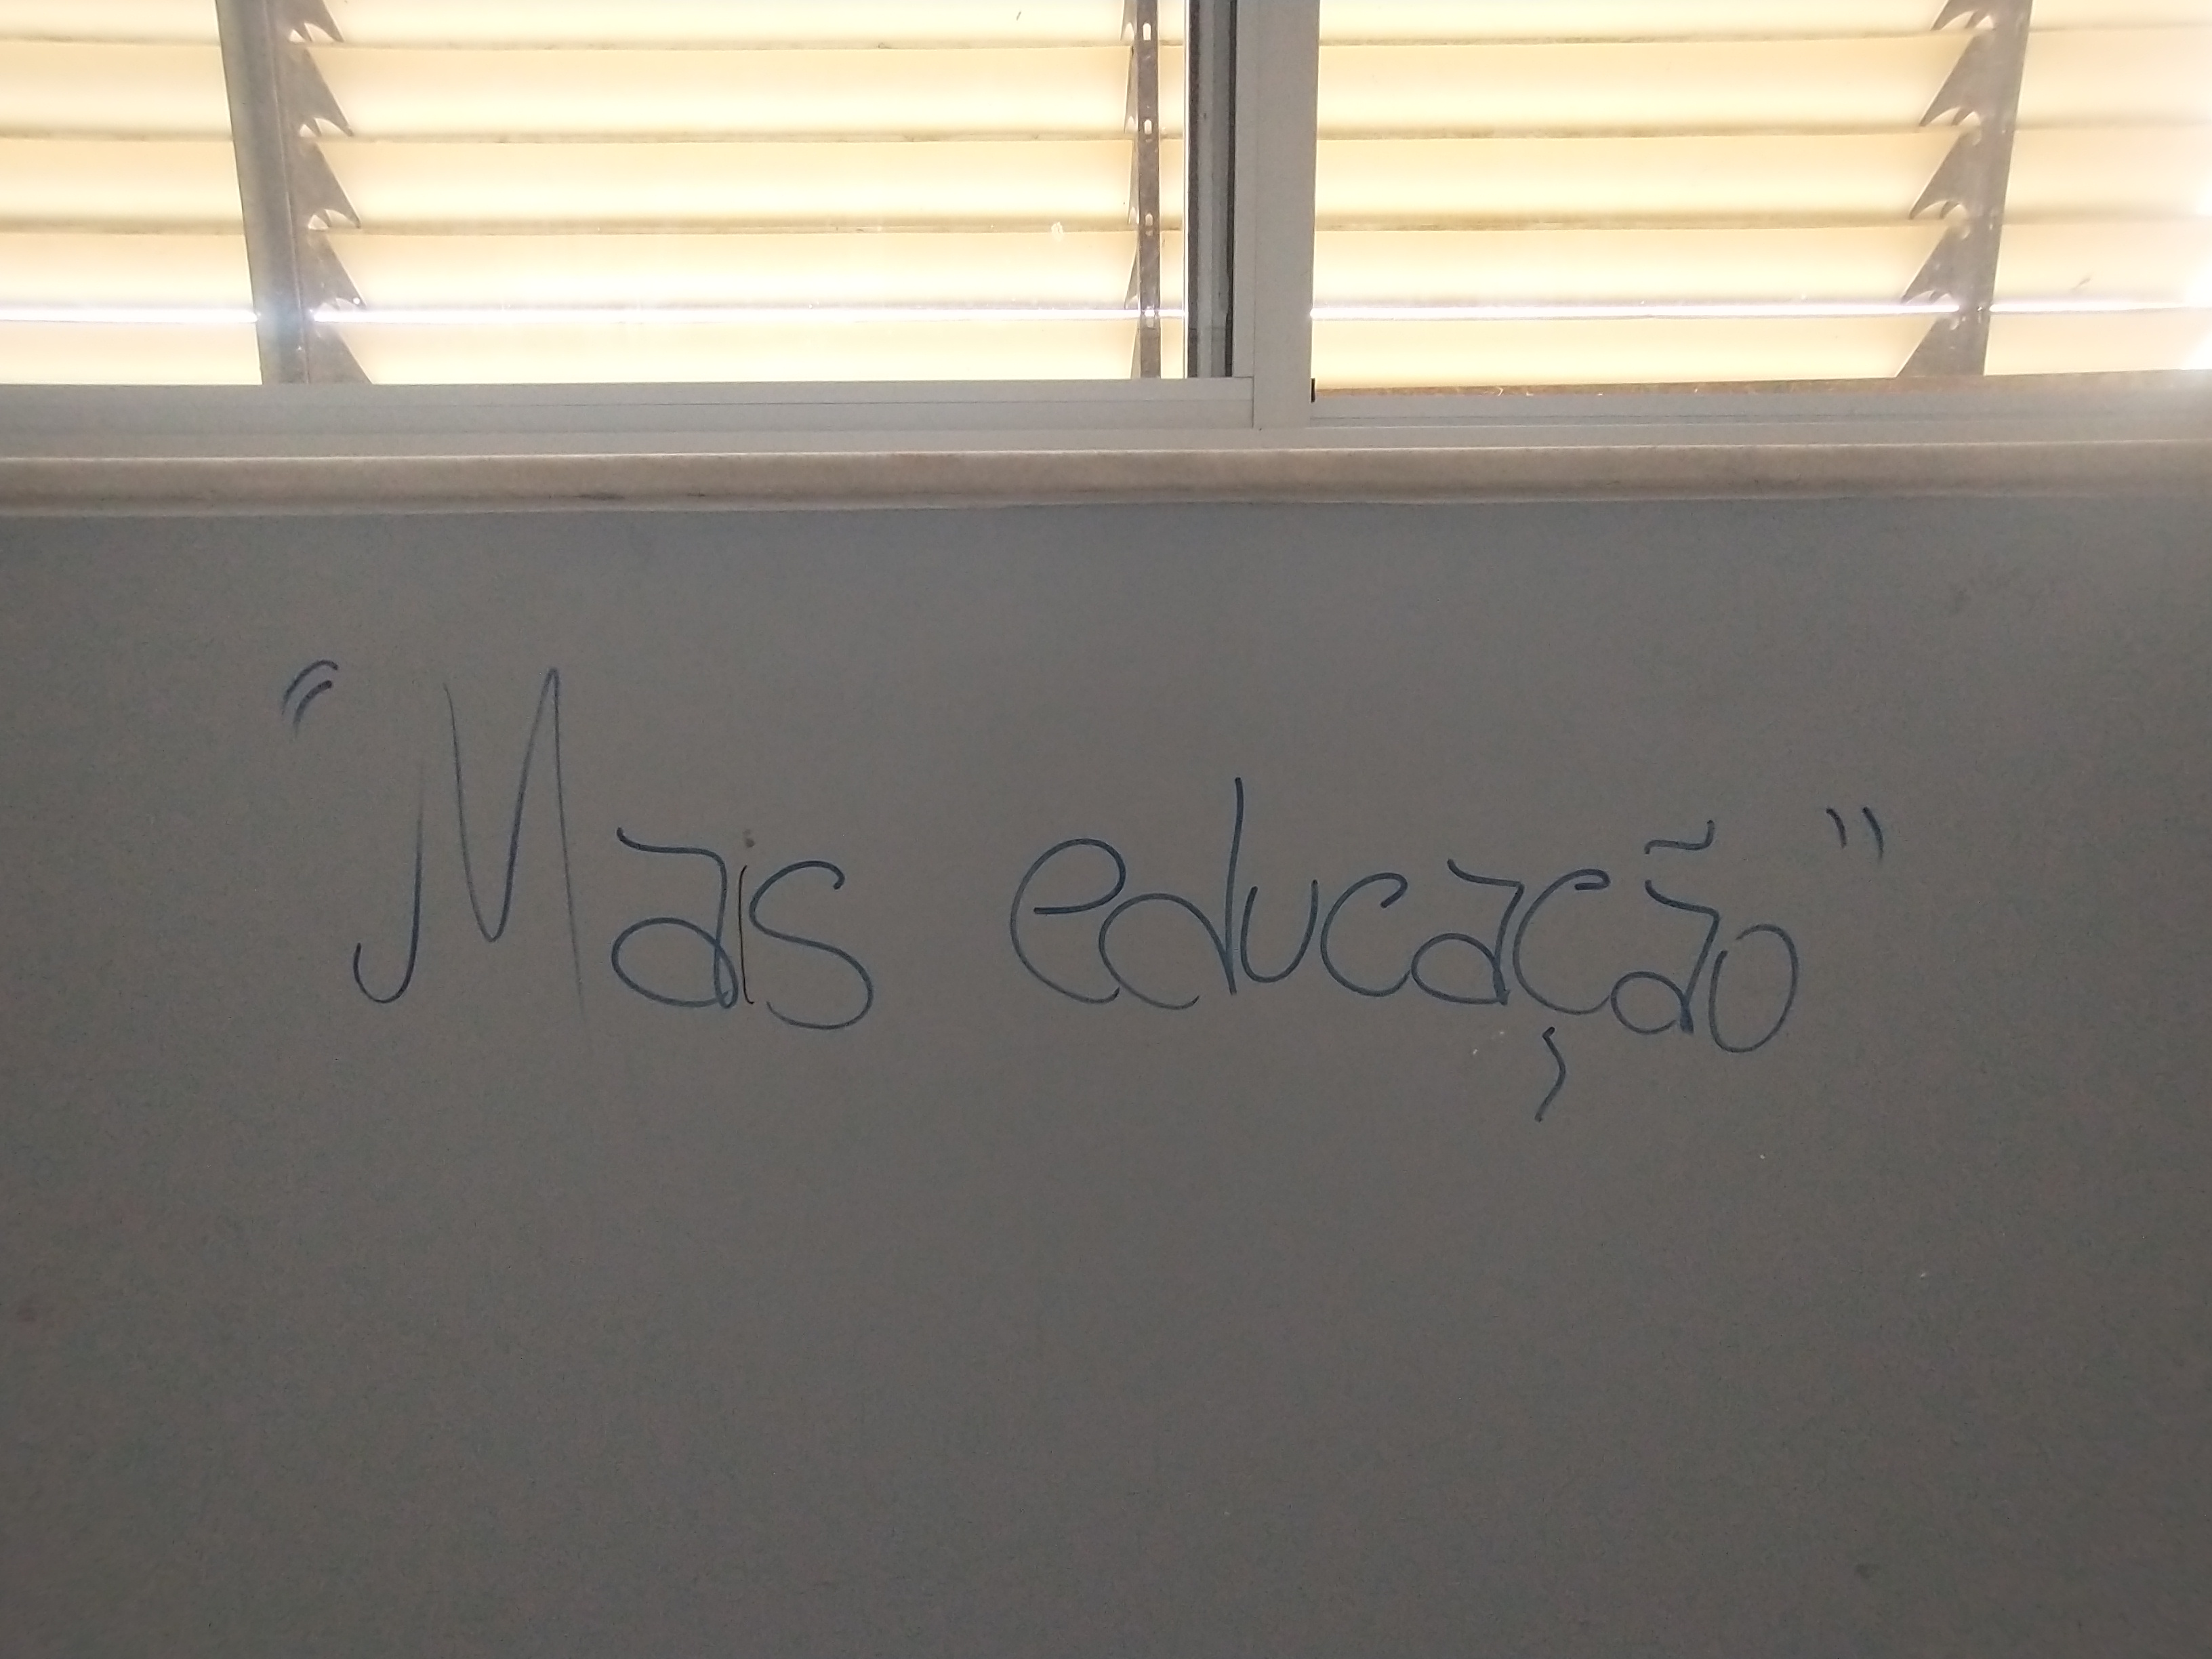 "Mais educação"